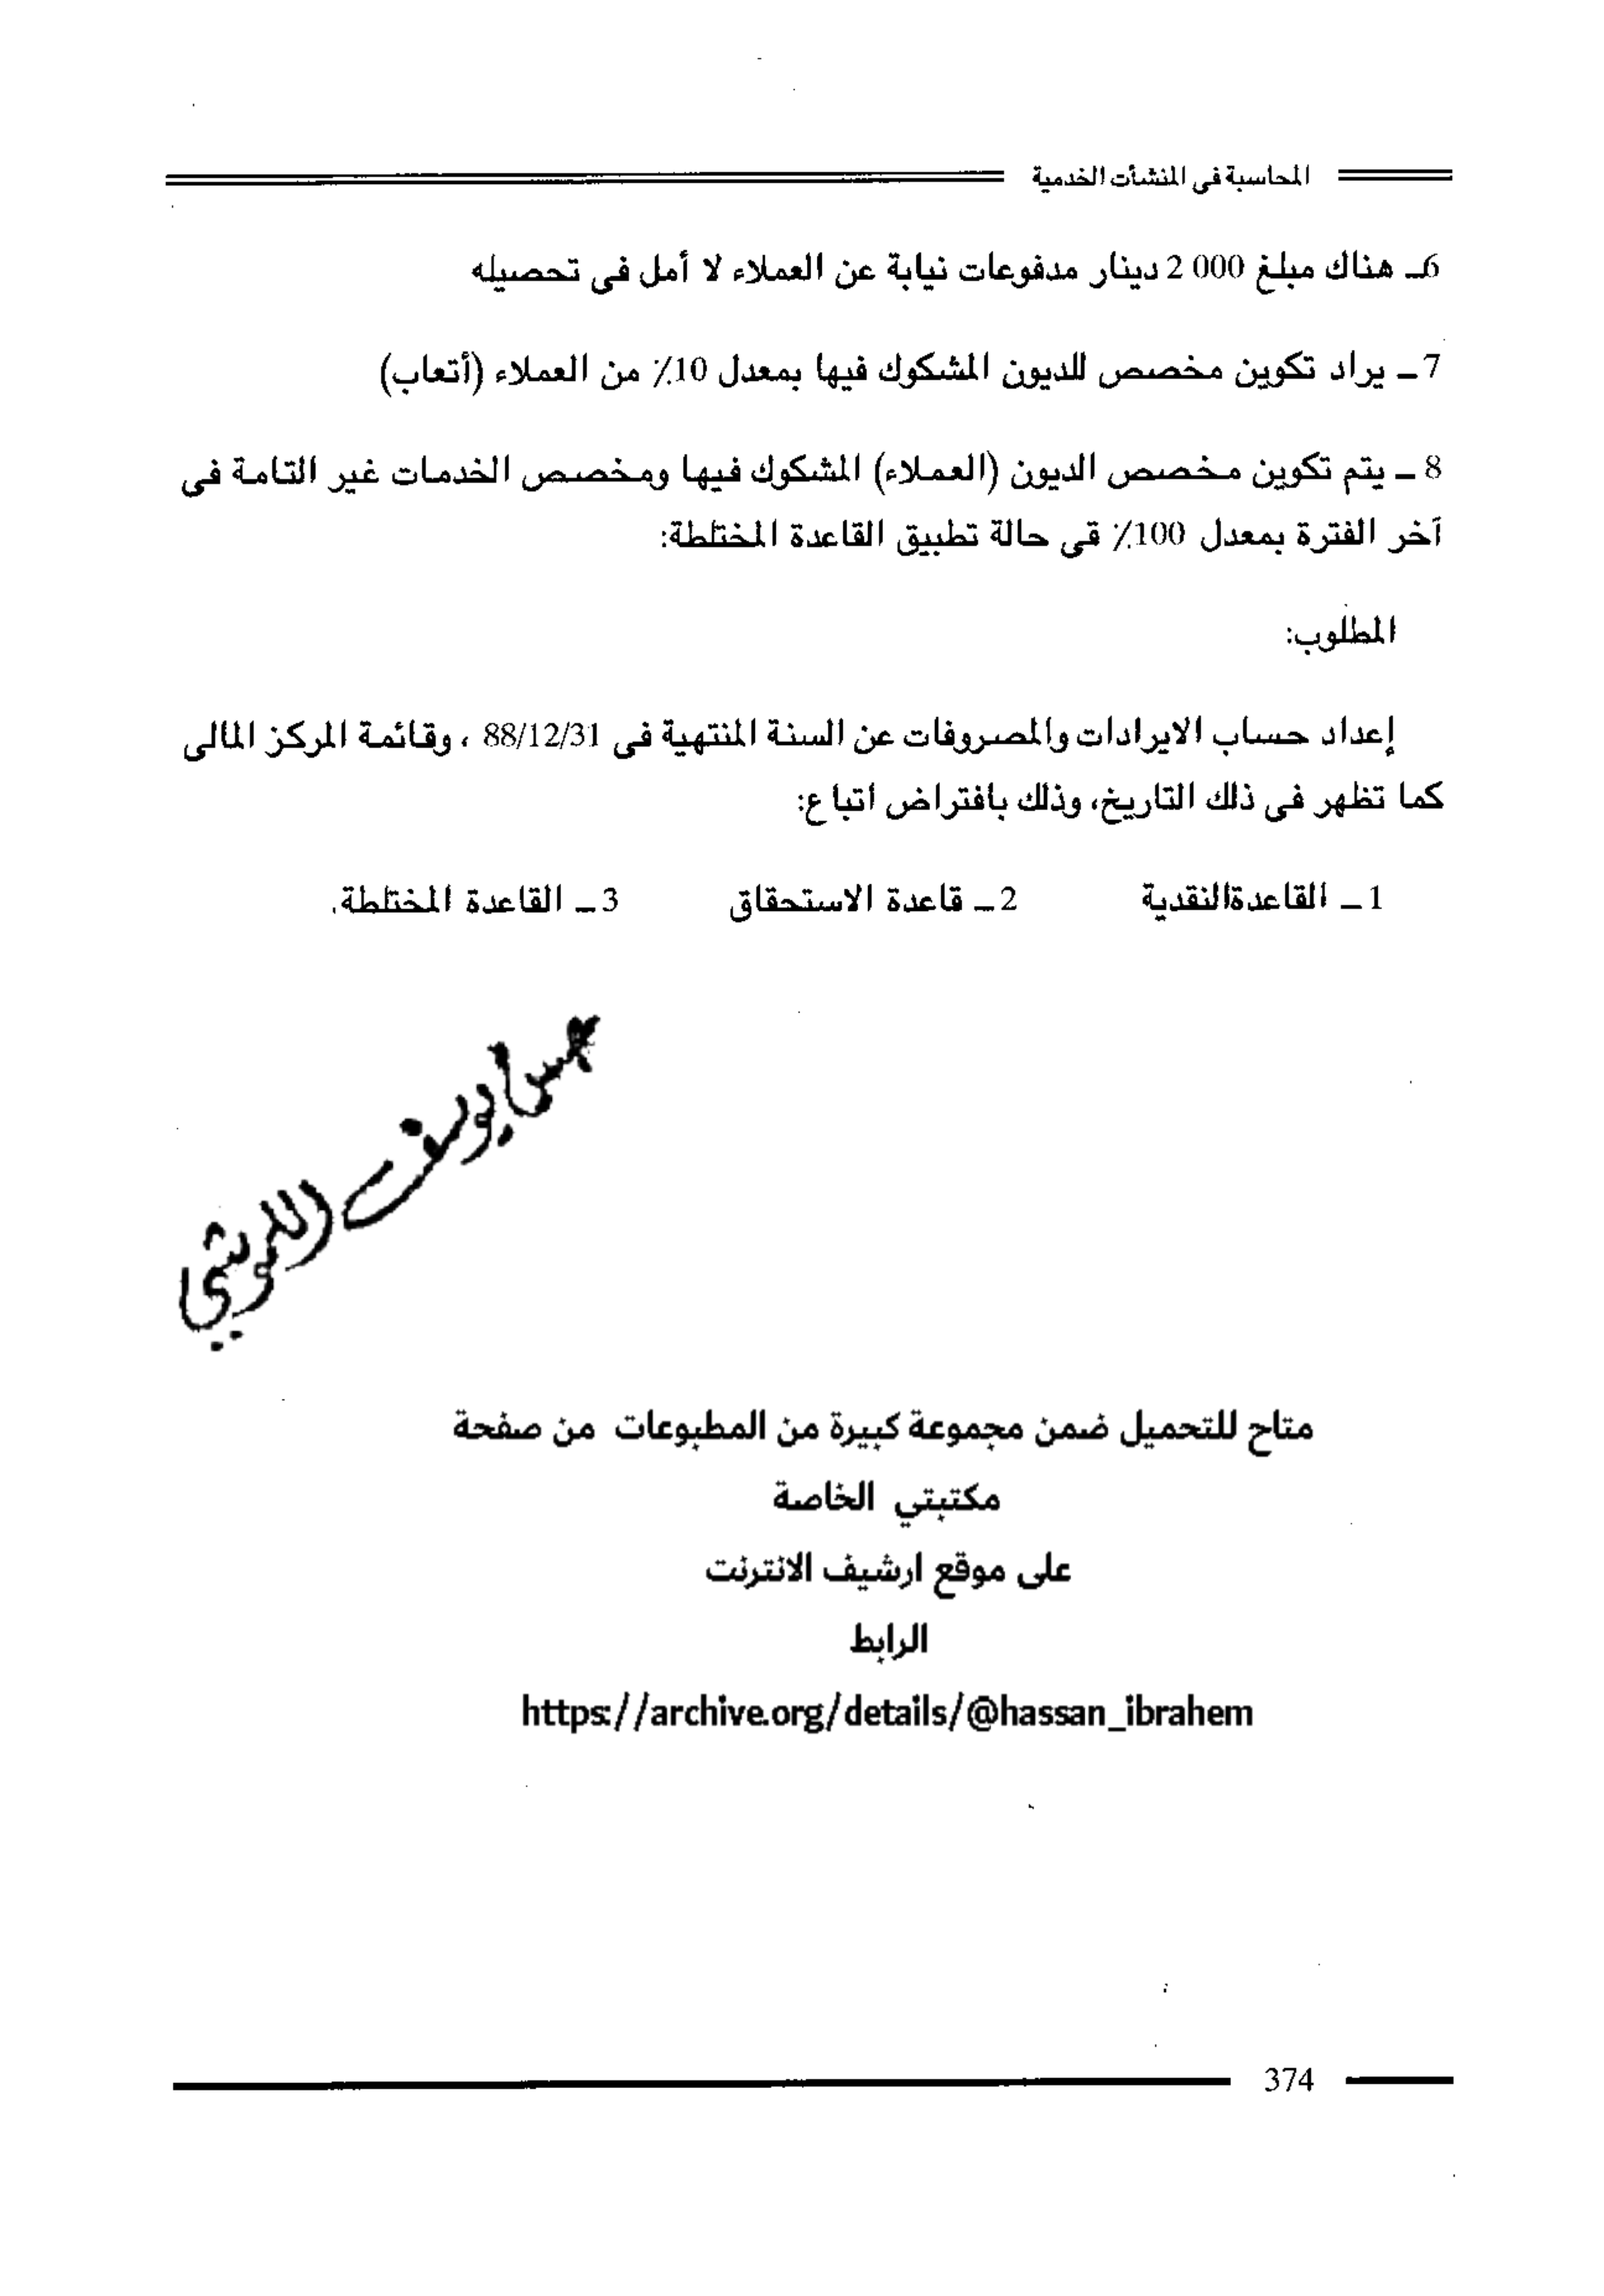 المحاسبة فى المنشأت الخدمية
6ـ هناك مبلغ 000 2 دينار مدفوعات نيابة عن العملاء لا أمل فى تحصيله
7 ـ يراد تكوين مخصص للديون المشكوك فيها بمعدل 10٪ من العملاء (أتعاب)
8 ـ يتم تكوين مخصص الديون (العملاء) المشكوك فيها ومخصص الخدمات غير التامة فى
آخر الفترة بمعدل 100٪ قى حالة تطبيق القاعدة المختلطة:
المطلوب:
إعداد حساب الايرادات والمصروفات عن السنة المنتهية فى 88/12/31 ، وقائمة المركز المالى
كما تظهر فى ذلك التاريخ، وذلك بافتراض اتباع:
1 ـ القاعدةالنقدية 2 ـ قاعدة الاستحقاق 3 ـ القاعدة المختلطة.
يوسف
متاح للتحميل ضمن مجموعة كبيرة من المطبوعات من صفحة
مكتبتي الخاصة
على موقع ارشيف الانترنت
الرابط
https://archive.org/details/@hassan_ibrahem
374